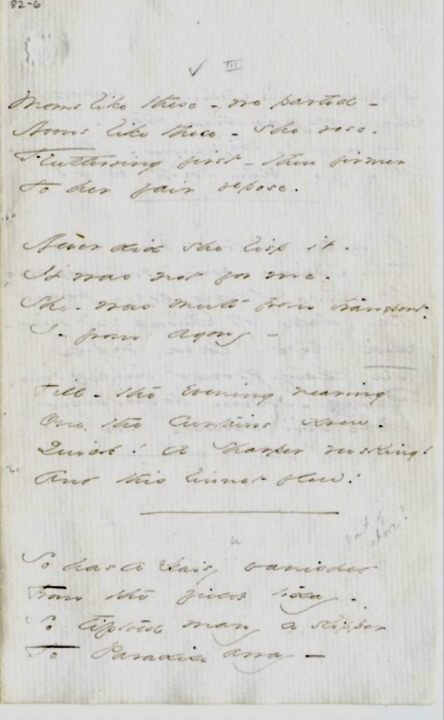 82-6
III
Morns like these - we parted -
Noons like these - she rose -
Fluttering first - then firmer
To her fair repose.
Never did she lisp it.
It was not for me -
She - was mute from transport -
I - from agony -
Till - the evening nearing
One the curtains drew -
Quick! A sharper rustling!
And this linnet flew!
So has a Daisy vanished
From the fields today -
So tiptoed many a slipper
To Paradise away -